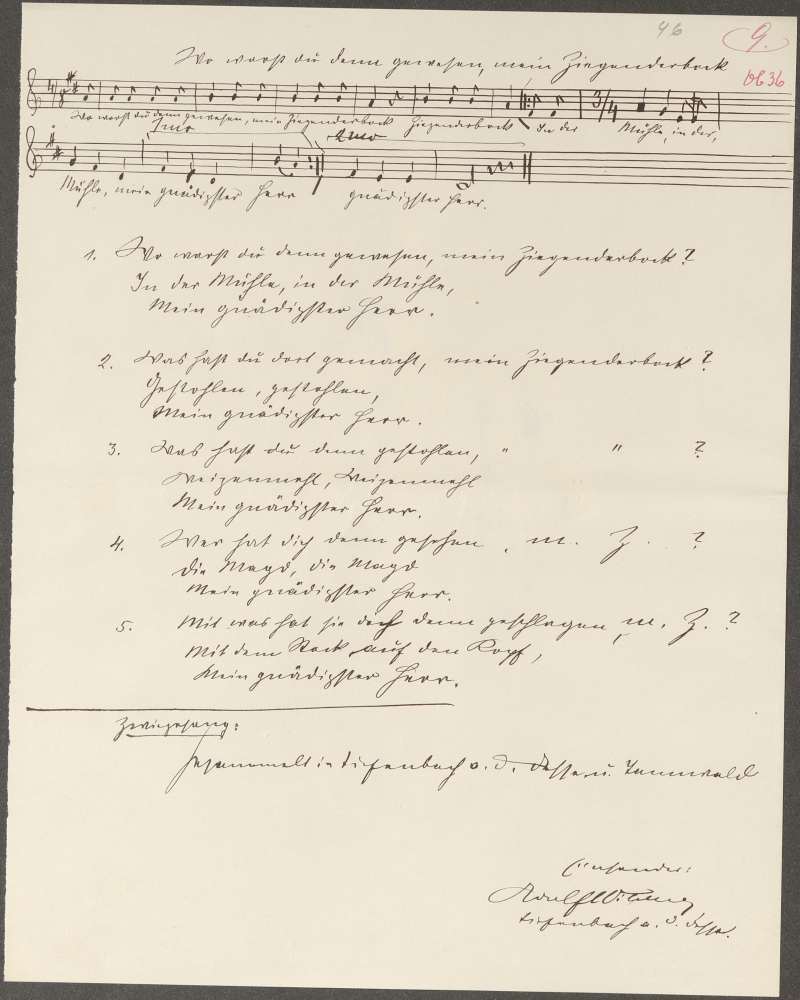 46
9.
Wo warst du denn gewesen, mein Ziegenderbock
3/4
Wo warst du denn gewesen, mein Ziegenderbock Ziegenderbock In der Mühle, in der,
1mo 2mo
Mühle, mein gnädigster Herr gnädigster Herr.
1. Wo warst du denn gewesen, mein Ziegenderbock?
In der Mühle, in der Mühle,
Mein gnädigster Herr.
2. Was hast du dort gemacht, mein Ziegenderbock?
Gestohlen, gestohlen,
Mein gnädigster Herr.
3. Was hast du denn gestohlen, " " ?
Weizenmehl, Weizenmehl
Mein gnädigster Herr.
4. Wer hat dich denn gesehen, m. Z. ?
Die Magd, die Magd
Mein gnädigster Herr.
5. Mit was hat sie dich denn geschlagen, m. Z. ?
Mit dem Stock auf den Kopf,
Mein gnädigster Herr.
Zwiegesang:
Gesammelt in Tiefenbach a. d. Desse u. Tannwald
Einsender:
Adolf
Tiefenbach a. d. Desse.